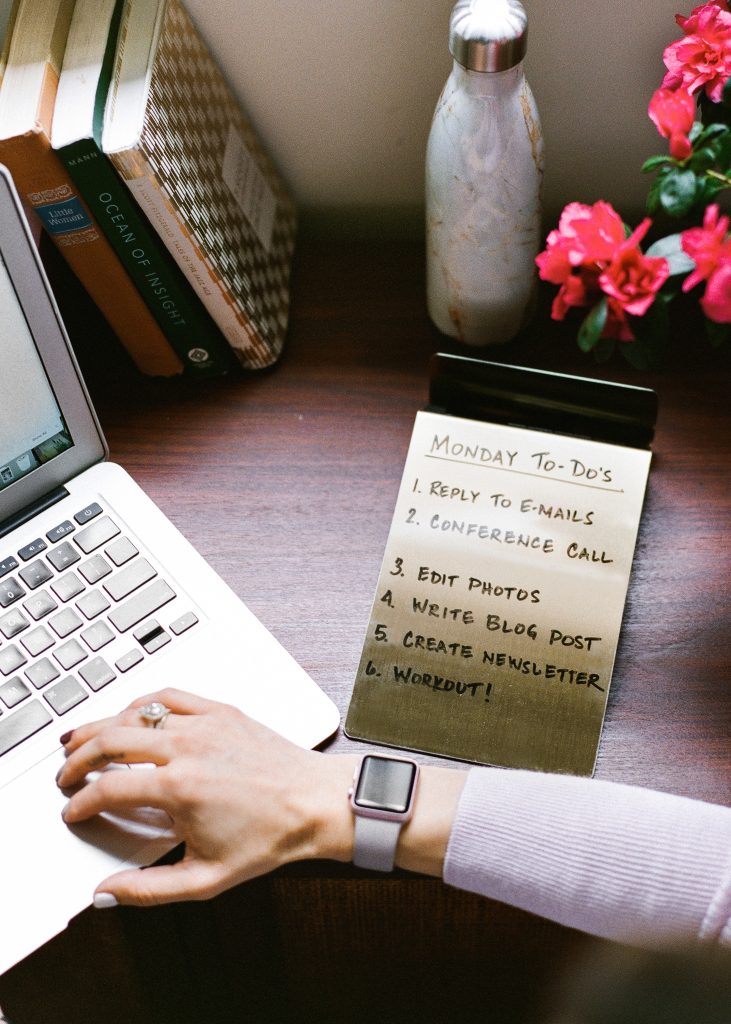 Little
Women
MANN
OCEAN OF INSIGHT
F. SCOTT FITZGERALD TALES OF THE JAZZ AGE
MONDAY TO-DO'S
1. REPLY TO E-MAILS
2. CONFERENCE CALL
3. EDIT PHOTOS
4. WRITE BLOG POST
5. CREATE NEWSLETTER
6. WORKOUT!